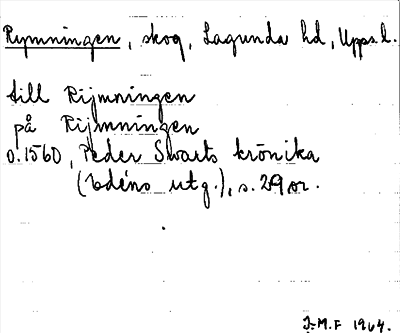 Rymningen, skog, Lagunda hd, Upps. l.
till Rijmningen
på Rijmningen
o. 1560, Peder Swarts krönika
(Edéns utg.), s. 29 or.
J.M.F 1964.